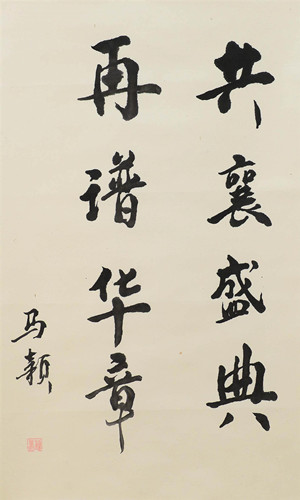 共襄盛典
再谱华章
马颖